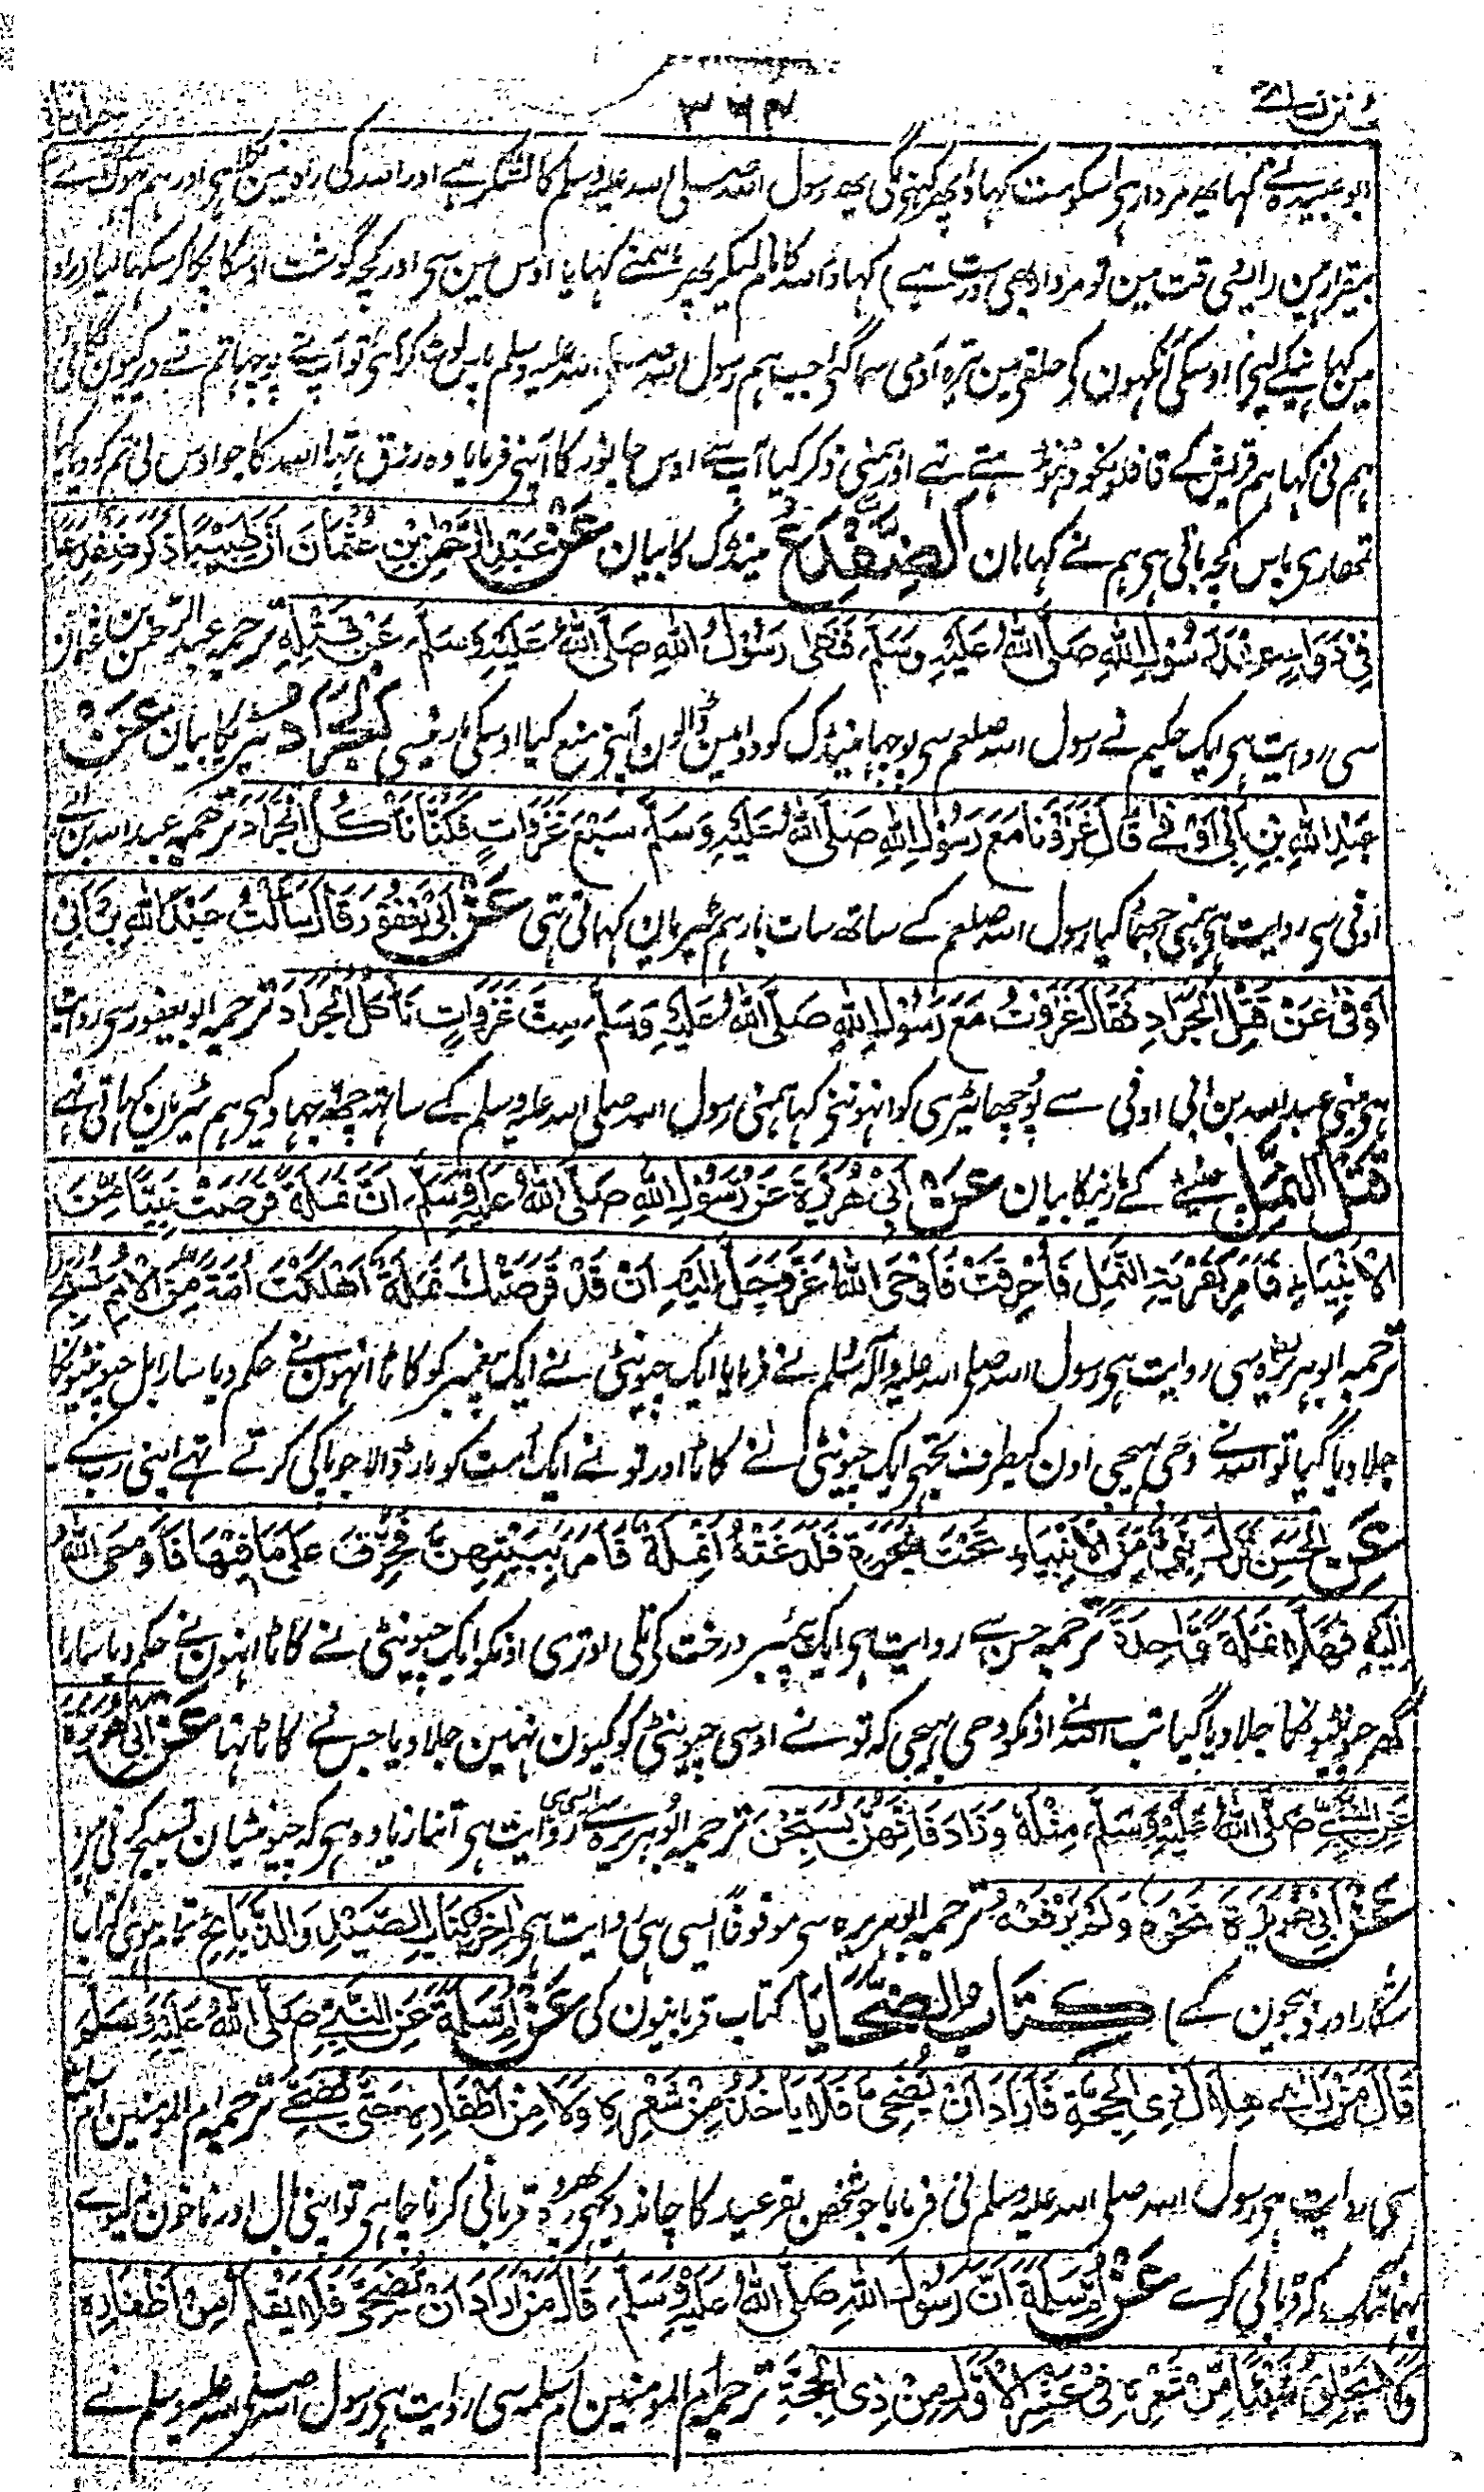 سنن نسائی ۳۶۴ جلد ثانی
ابو عبیدہ نے کہا یہ مردار ہی اسکو مت کہاؤ پھر کہنے لگی یہ رسول اللہ صلی اللہ علیہ وسلم کا لشکر ہے اور اللہ کی راہ مین نکلا ہی اور ہم بھوک سے
بیقرار ہین (ایسی وقت مین تو مردار بھی درست ہے) کہاؤ اللہ کا نام لیکر پھر ہمنے کہایا اوس مین سی اور کچہ گوشت اوسکا پکا کر سکھا لیا (راہ
مین کہانیکے لیئ) اوسکی آنکہون کی حلقی مین تیرہ آدمی سما گئ جب ہم رسول اللہ صلی اللہ علیہ وسلم پاس لوٹ کر آئی تو آپ نے پوچہا تم نے دیر کیون لگائی
ہم نی کہا ہم قریش کے قافلونکو ڈہونڈہتے تہے اور ہمنی ذکر کیا آپ سے اوس جانور کا آپنی فرمایا وہ رزق تہا اللہ کا جو اوس نی تم کو دیا کیا
تمھاری پاس کچہ باقی ہی ہم نے کہا ہان الضِّفْدَعُ مینڈک کا بیان عَنْ عَبْدِ الرَّحْمٰنِ بْنِ عُثْمَانَ اَنَّ طَبِیْبًا ذَکَرَ ضِفْدَعًا
فِیْ دَوَاءٍ عِنْدَ رَسُوْلِ اللهِ صَلَّی اللهُ عَلَیْهِ وَسَلَّمَ فَنَهٰی رَسُوْلُ اللهِ صَلَّی اللهُ عَلَیْهِ وَسَلَّمَ عَنْ قَتْلِهٖ ترجمہ عبد الرحمن بن عثمان
سی روایت ہی ایک حکیم نے رسول اللہ صلعم سی پوچہا مینڈک کو دوا مین ڈالون آپنی منع کیا اوسکی مارنیسی اَلْجَرَادُ ٹیڑیکا بیان عَنْ
عَبْدِ اللهِ بْنِ اَبِیْ اَوْفٰے قَالَ غَزَوْنَا مَعَ رَسُوْلِ اللهِ صَلَّی اللهُ عَلَیْهِ وَسَلَّمَ سَبْعَ غَزَوَاتٍ فَکُنَّا نَاْکُلُ الْجَرَادَ ترجمہ عبد اللہ بن ابے
اوفی سی روایت ہی ہمنی جہاد کیا رسول اللہ صلعم کے ساتھ سات بار ہم ٹیڑیان کہاتی تہی عَنْ اَبِیْ یَعْفُوْرَ قَالَ سَاَلْتُ عَبْدَ اللهِ بْنَ اَبِیْ
اَوْفٰی عَنْ قَتْلِ الْجَرَادِ فَقَالَ غَزَوْتُ مَعَ رَسُوْلِ اللهِ صَلَّی اللهُ عَلَیْهِ وَسَلَّمَ سِتَّ غَزَوَاتٍ نَاْکُلُ الْجَرَادَ ترجمہ ابو یعفور سی روایت
ہی مینی عبد اللہ بن ابی اوفی سے پوچھا ٹیڑی کو انہونی کہا ہمنی رسول اللہ صلی اللہ علیہ وسلم کے ساتہہ چھہ جہاد کیئ ہم ٹیڑیان کہاتی تہے
قَتْلُ النَّمْلِ چیونٹی کے مارنیکا بیان عَنْ اَبِیْ هُرَیْرَةَ عَنْ رَسُوْلِ اللهِ صَلَّی اللهُ عَلَیْهِ وَسَلَّمَ اَنَّ نَمْلَةً قَرَصَتْ نَبِیًّا مِّنَ
الْاَنْبِیَاءِ فَاَمَرَ بِقَرْیَةِ النَّمْلِ فَاُحْرِقَتْ فَاَوْحَی اللهُ عَزَّ وَجَلَّ اِلَیْهِ اَنْ قَدْ قَرَصَتْكَ نَمْلَةٌ اَهْلَكْتَ اُمَّةً مِّنَ الْاُمَمِ تُسَبِّحُ
ترجمہ ابو ہریرہ سی روایت ہی رسول اللہ صلی اللہ علیہ وآلہ وسلم نے فرمایا ایک چیونٹی نے ایک پیغمبر کو کاٹا انہون نے حکم دیا سارا بل چیونٹیونکا
جلا دیا گیا تو اللہ نے وحی بہیجی اون کیطرف تجھی ایک چیونٹی نے کاٹا اور تو نے ایک امت کو مار ڈالا جو پاکی کرتے تہے اپنی رب کے
عَنِ الْحَسَنِ نَزَلَ نَبِیٌّ مِنَ الْاَنْبِیَاءِ تَحْتَ شَجَرَةٍ فَلَدَغَتْهُ نَمْلَةٌ فَاَمَرَ بِبَیْتِهِنَّ فَحُرِّقَ عَلٰی مَا فِیْهَا فَاَوْحَی اللهُ
اِلَیْهِ فَهَلَّا نَمْلَةً وَّاحِدَةً ترجمہ حسن سے روایت ہی ایک پیغمبر درخت کی تلی اوتری اونکو ایک چیونٹی نے کاٹا انہون نے حکم دیا سارا
گھر چیونٹیونکا جلا دیا گیا تب اللہ نے اونکو وحی بہیجی کہ تو نے اوسی چیونٹی کو کیون نہین جلا دیا جس نے کاٹا تہا عَنْ اَبِیْ هُرَیْرَةَ
عَنِ النَّبِیِّ صَلَّی اللهُ عَلَیْهِ وَسَلَّمَ مِثْلَهٗ وَزَادَ فَاِنَّهُنَّ یُسَبِّحْنَ ترجمہ ابو ہریرہ سے ایسی ہی روایت ہی اتنا زیادہ ہی کہ چیونٹیان تسبیح کرتی ہین
عَنْ اَبِیْ هُرَیْرَةَ نَحْوَهٗ وَلَمْ یَرْفَعْهُ ترجمہ ابو ہریرہ سی موقوفاً ایسی ہی روایت ہی اٰخِرُ کِتَابِ الصَّیْدِ وَالذَّبَائِحِ تمام ہوئی کتاب
شکار اور ذبیحون کے) کِتَابُ الضَّحَایَا کتاب قربانیون کی عَنْ اُمِّ سَلَمَةَ عَنِ النَّبِیِّ صَلَّی اللهُ عَلَیْهِ وَسَلَّمَ
قَالَ مَنْ رَاٰی هِلَالَ ذِی الْحِجَّةِ فَاَرَادَ اَنْ یُّضَحِّیَ فَلَا یَاْخُذْ مِنْ شَعْرِهٖ وَلَا مِنْ اَظْفَارِهٖ حَتّٰی یُضَحِّیَ ترجمہ ام المومنین ام سلمہ
سی روایت ہی رسول اللہ صلی اللہ علیہ وسلم نی فرمایا جو شخص بقر عید کا چاند دیکہی پھر وہ قربانی کرنا چاہی تو اپنی بال اور ناخون نہ لیوے
یہانتک کہ قربانی کرے عَنْ اُمِّ سَلَمَةَ اَنَّ رَسُوْلَ اللهِ صَلَّی اللهُ عَلَیْهِ وَسَلَّمَ قَالَ مَنْ اَرَادَ اَنْ یُّضَحِّیَ فَلَا یُقَلِّمْ مِنْ اَظْفَارِهٖ
وَلَا یَحْلِقْ شَیْئًا مِّنْ شَعْرِهٖ فِیْ عَشْرِ الْاُوَلِ مِنْ ذِی الْحِجَّةِ ترجمہ ام المومنین ام سلمہ سی روایت ہی رسول اللہ صلی اللہ علیہ وسلم نے